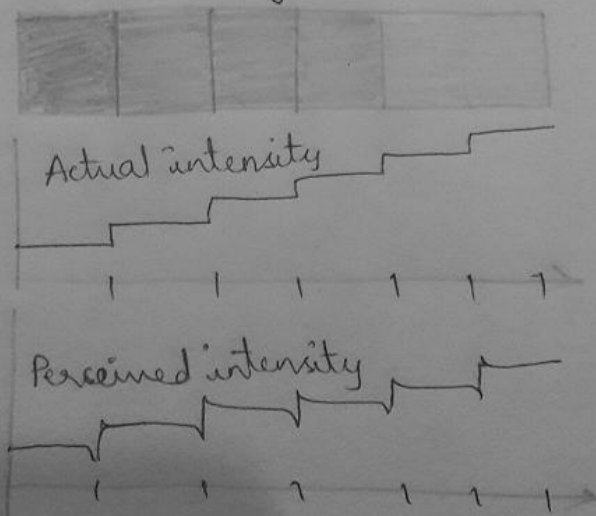 Actual intensity
Perceived intensity